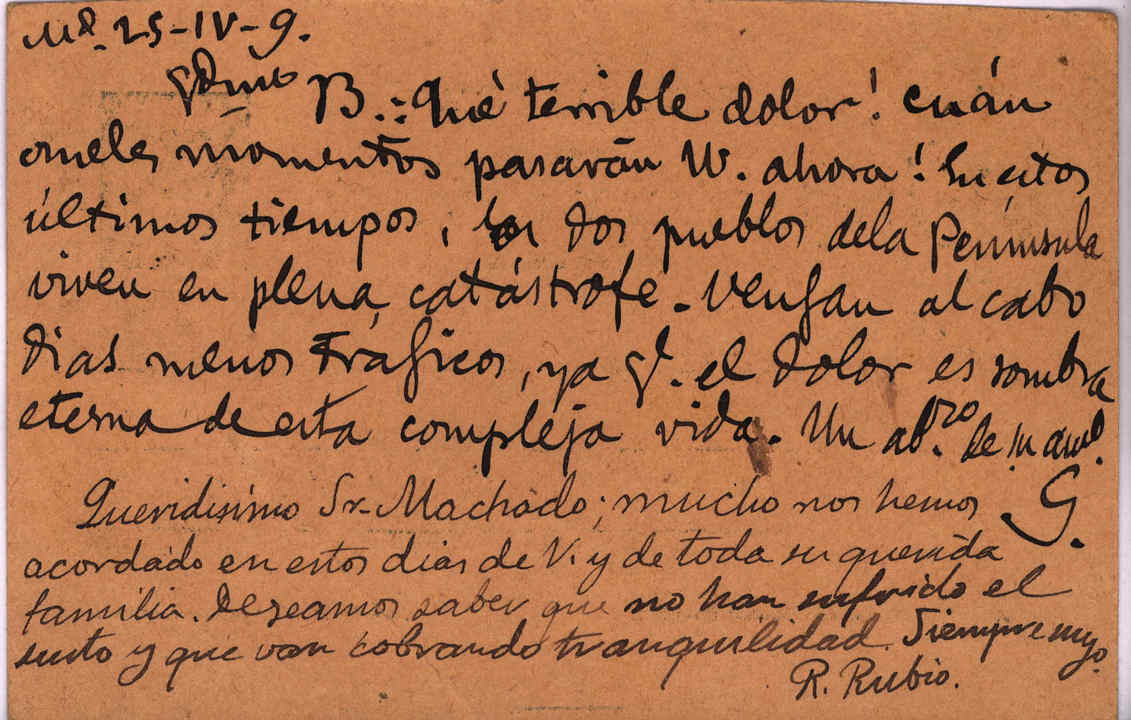 Md. 25-IV-9.
Qdmo B.: Qué terrible dolor! cuán
crueles momentos pasarán VV. ahora! En estos
últimos tiempos, los dos pueblos de la Península
viven en plena catástrofe. Vengan al cabo
dias menos trágicos, ya q^e. el dolor es sombra
eterna de esta compleja vida. Un ab.zo de su am^o.
G.
Queridísimo Sr. Machado; mucho nos hemos
acordado en estos dias de V. y de toda su querida
familia. Deseamos saber que no han sufrido el
susto y que van cobrando tranquilidad. Siempre suyo.
R. Rubio.